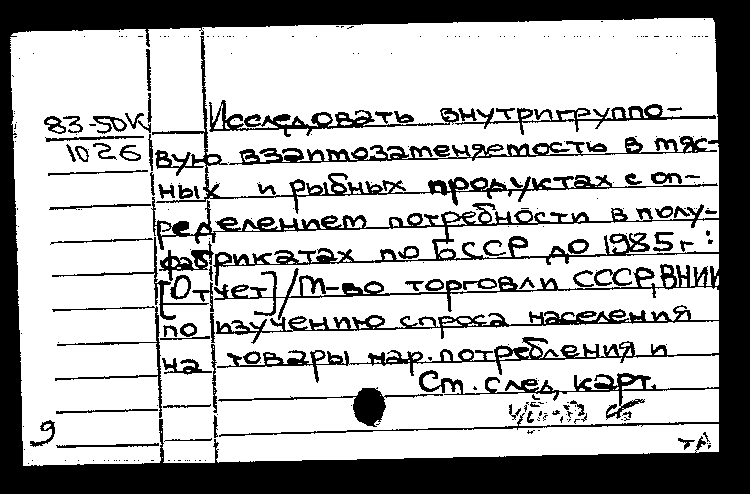 83-50К Исследовать внутригруппо-
1026 вую взаимозаменяемость в мяс-
ных и рыбных продуктах с оп-
ределением потребности в полу-
фабрикатах по БССР до 1985г:
[Отчет]/М-во торговли СССР, ВНИИ
по изучению спроса населения
на товары нар. потребления и
См. след. карт.
9
тА